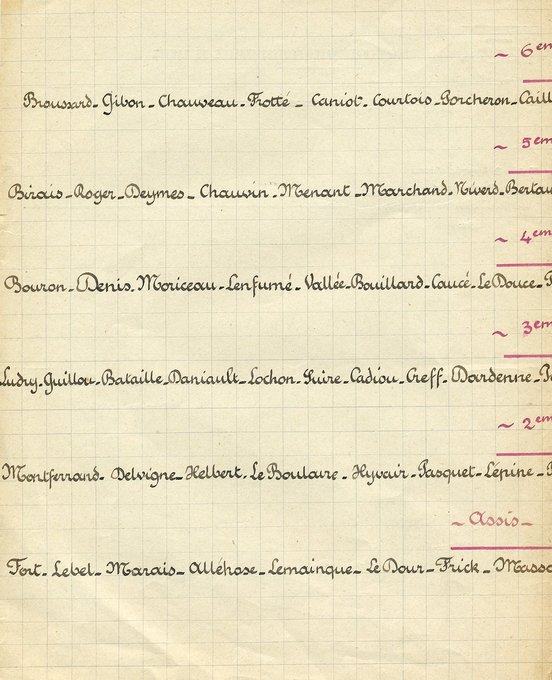 ~ 6em
Broussard - Gibon - Chauveau - Frotté - Caniot - Courtois - Porcheron - Caill
~ 5em
Birais - Roger - Deymes - Chauvin - Menant - Marchand - Niverd - Bertau
~ 4em
Bouron - Denis - Moriceau - Lenfumé - Vallée - Bouillard - Caucé - Le Douce -
~ 3em
Ludry - Guillou - Bataille - Daniault - Lochon - Suire - Cadiou - Creff - Dardenne -
~ 2em
Montferrand - Delvigne - Helbert - Le Boulaire - Hyvair - Pasquet - Lépine -
~ Assis -
Fort - Lebel - Marais - Alléhose - Lemainque - Le Dour - Frick - Masso